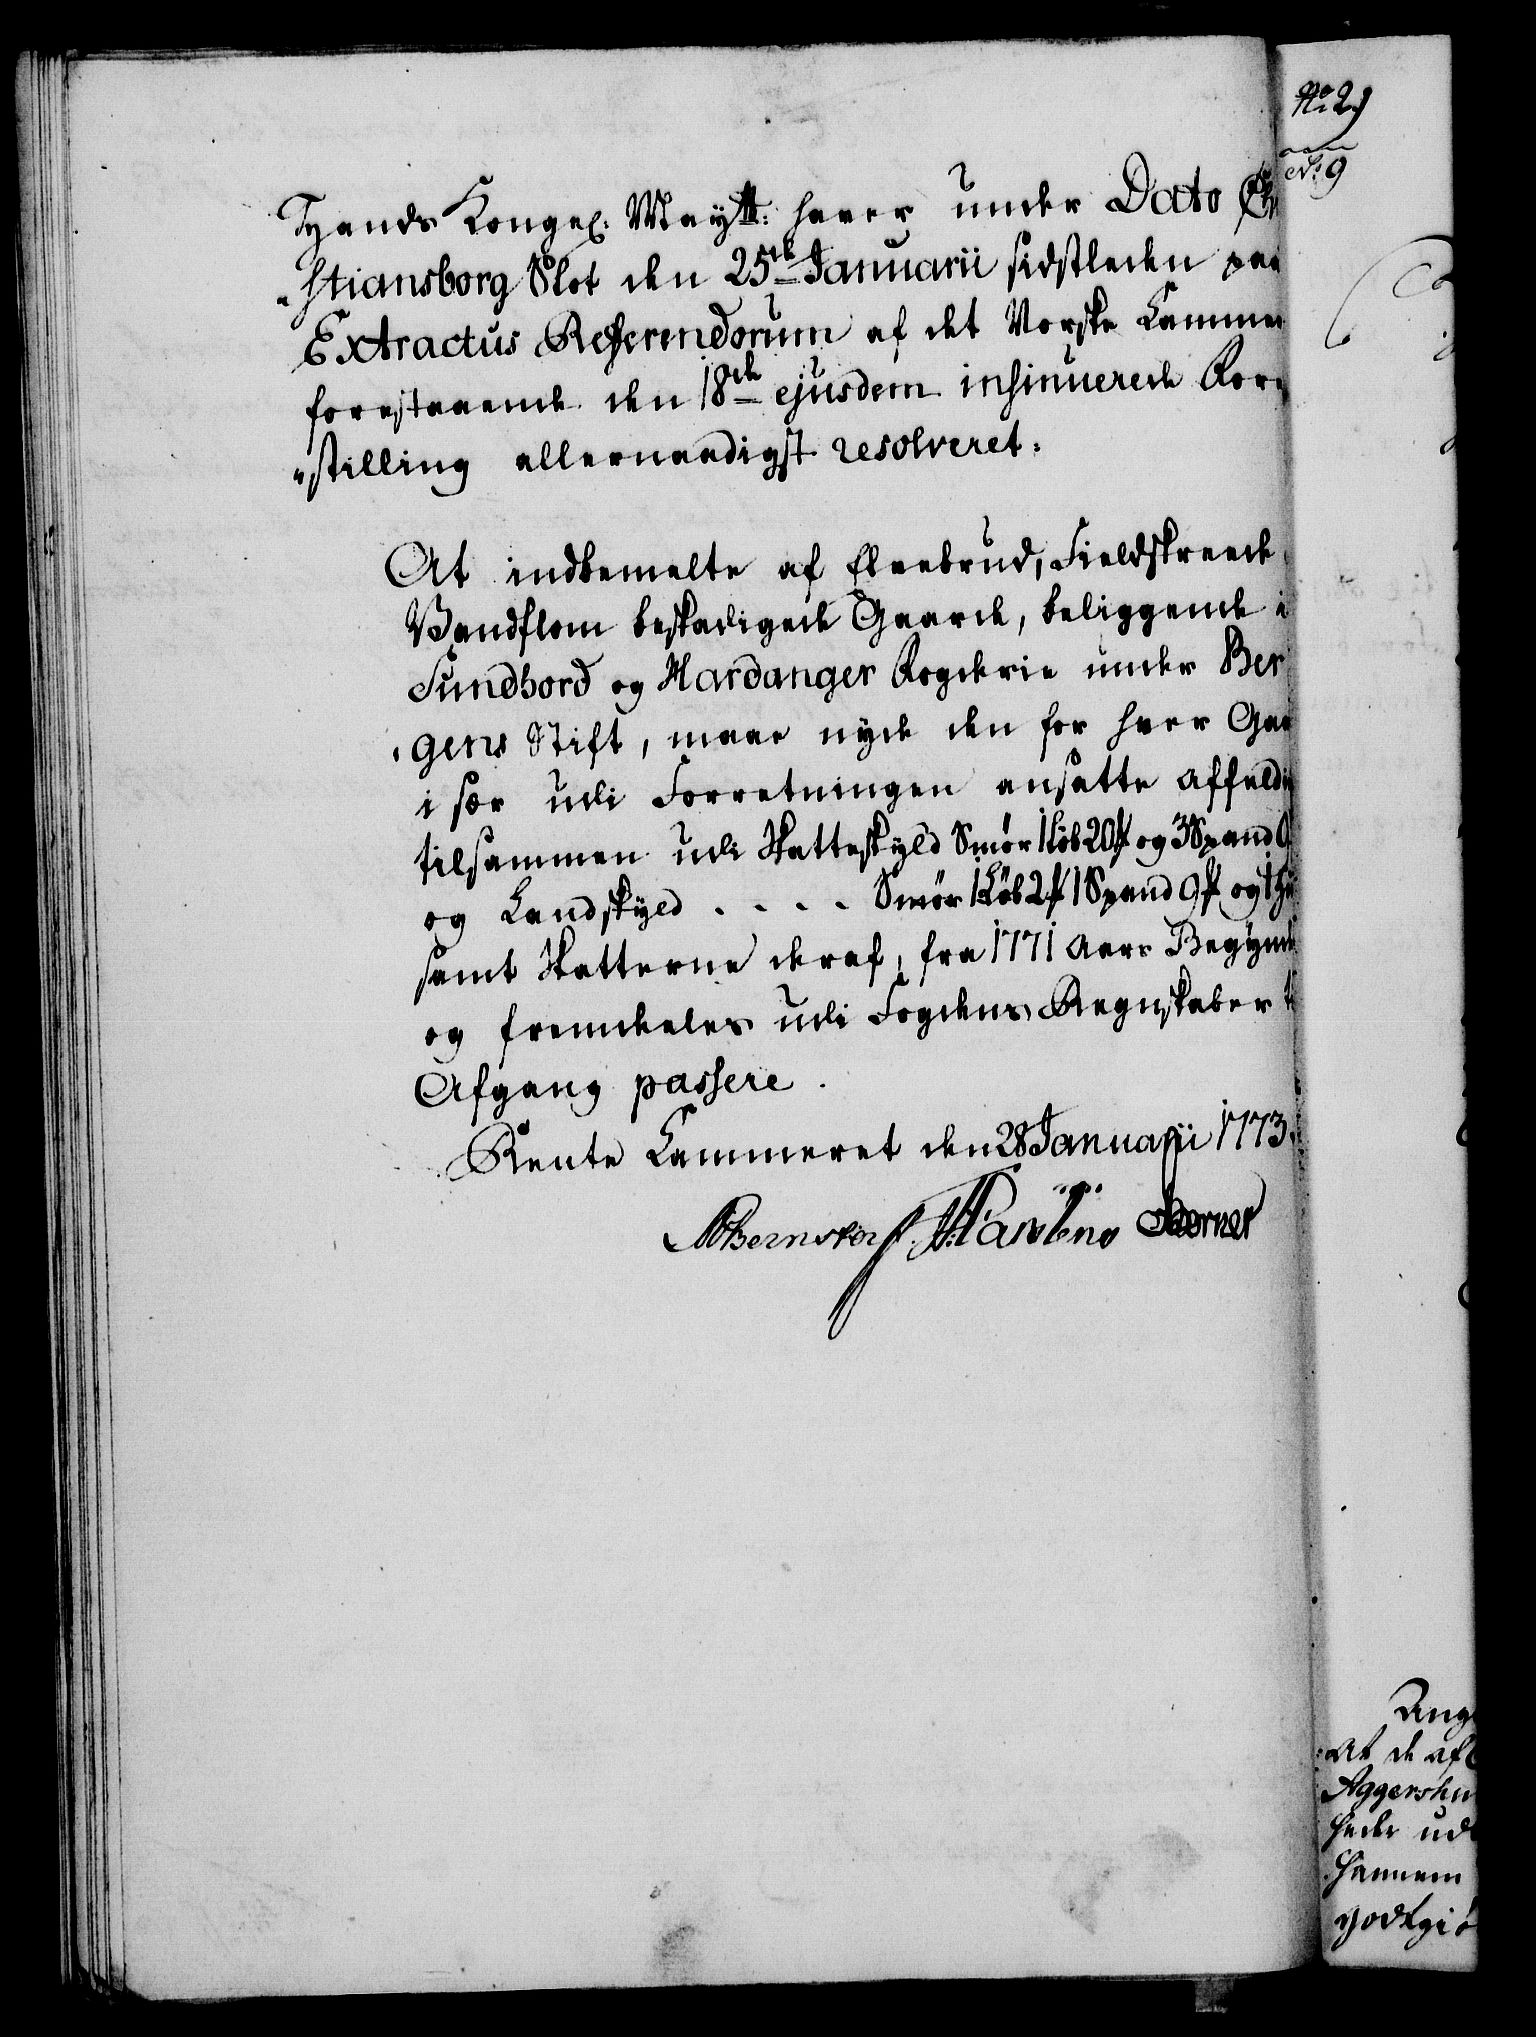 Hands Kongel: Maytt: haver under Dato Chri
"stiansborg Slot den 25de Januarii sidstleden paa
Extractus Referendorum af det Norske Kammer
forestaaende den 18de ejusdem insinuerede Fore
"stilling allernaadigst resolveret:
At indbemelte af Elvebrud, Fieldskreede
Vandflom beskadigede Gaarde, beliggende i
Sundhord og Hardanger Fogderie under Ber
"gens Stift, maae nyde den for hver Gaar
i sær udi Forretningen ansatte Affeldi
tilsammen udi Skatteskyld Smør 1 Løb 20 ℔ og 3 Spand
og Landskyld . - - - Smør 1 Løb 2 ℔ 1 Spand 9 ℔ og 1 Hu
samt Skatterne deraf, fra 1771 Aars Begynde
og fremdeles udi Fogdens Regnskaber ti
Afgang passere.
Rente Kammeret den 28 Januarii 1773.
No. 2
No: 9
Ang
At de af
Aggershu
heder ud
hannem
godtgiø